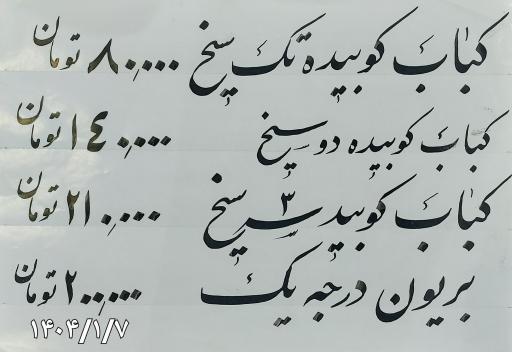 کباب کوبیده تک سیخ ۸۰,۰۰۰ تومان
کباب کوبیده دو سیخ ۱٤۰,۰۰۰ تومان
کباب کوبیده سه ۳ سیخ ۲۱۰,۰۰۰ تومان
بریون درجه یک ۲۰۰,۰۰۰ تومان
۱۴۰۴/۱/۷